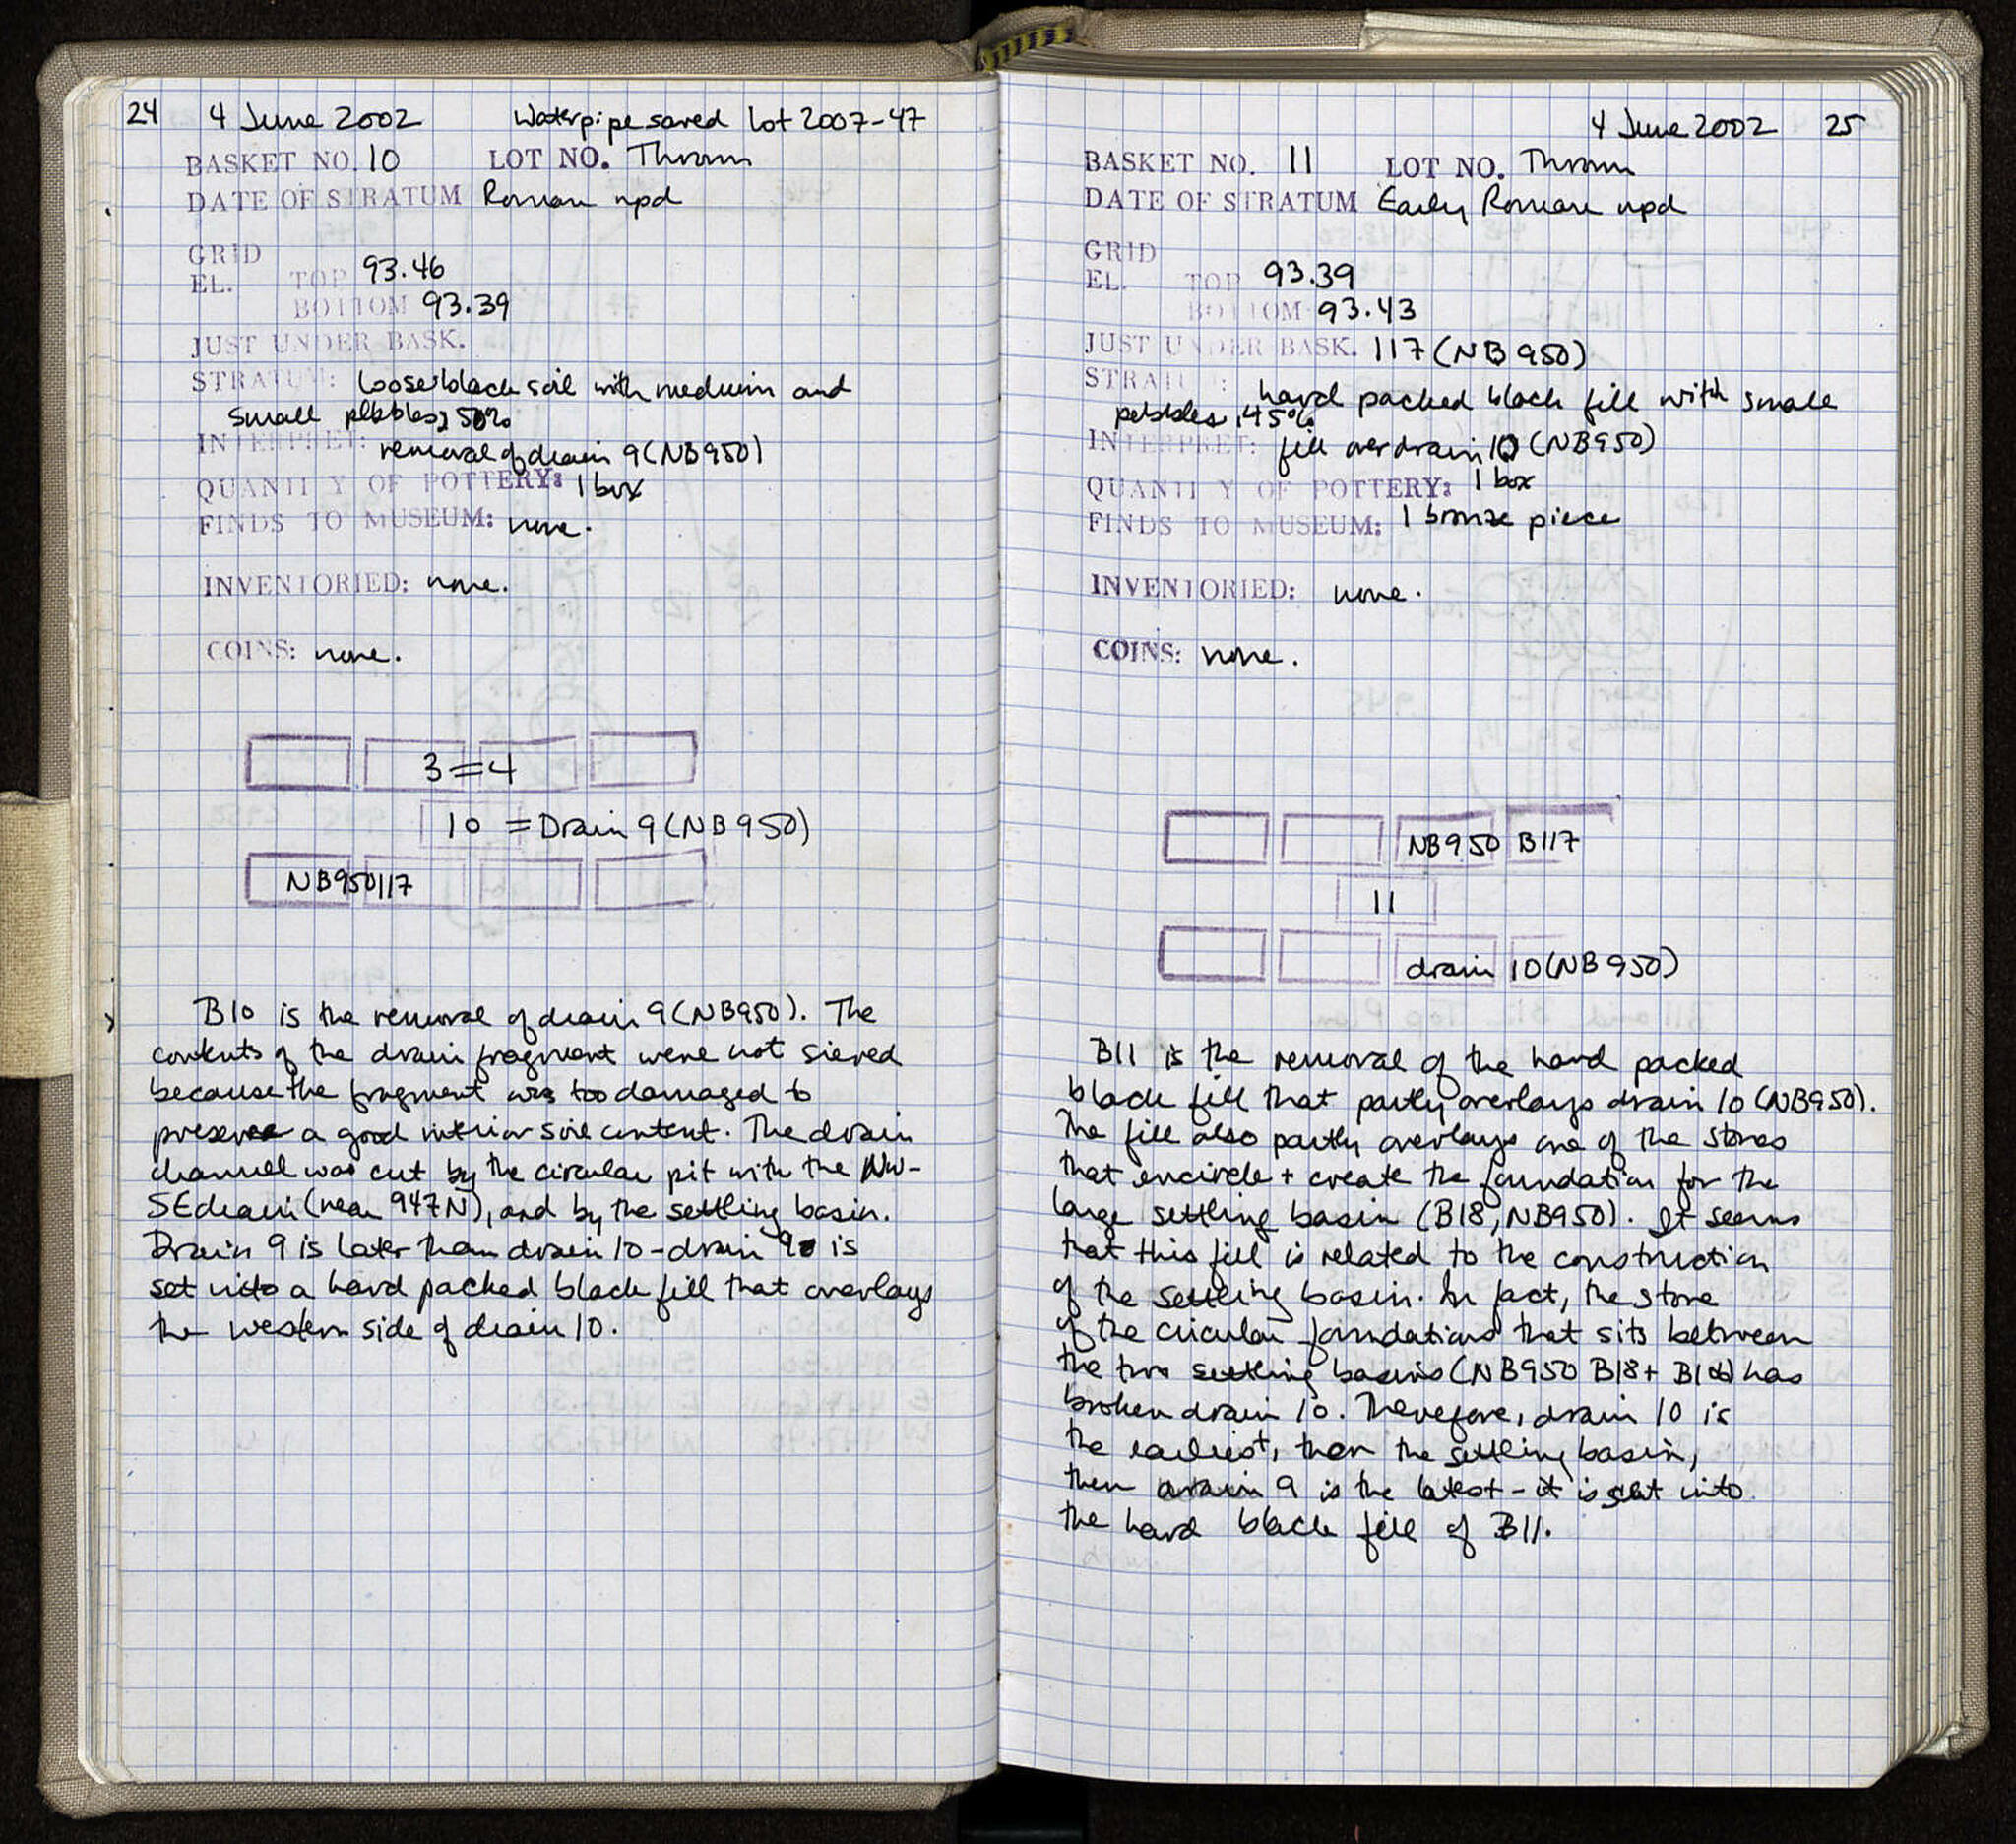 24 4 June 2002 Waterpipe saved Lot 2007-47
BASKET NO. 10 LOT NO. Thrown
DATE OF STRATUM Roman npd
GRID
EL. TOP 93.46
BOTTOM 93.39
JUST UNDER BASK.
STRATUM: loose black soil with medium and
small pebbles, 50%
INTERPRET: removal of drain 9 (NB950)
QUANTITY OF POTTERY: 1 box
FINDS TO MUSEUM: none.
INVENTORIED: none.
COINS: none.
3=4
10 = Drain 9 (NB950)
NB950 117
B10 is the removal of drain 9 (NB950). The
contents of the drain fragment were not sieved
because the fragment was too damaged to
preserve a good interior soil content. The drain
channel was cut by the circular pit with the NW-
SE drain (near 947N), and by the settling basin.
Drain 9 is later than drain 10 - drain 9 is
set into a hard packed black fill that overlays
the western side of drain 10.
4 June 2002 25
BASKET NO. 11 LOT NO. Thrown
DATE OF STRATUM Early Roman npd
GRID
EL. TOP 93.39
BOTTOM 93.43
JUST UNDER BASK. 117 (NB 950)
STRATUM: hard packed black fill with small
pebbles, 45%
INTERPRET: fill over drain 10 (NB950)
QUANTITY OF POTTERY: 1 box
FINDS TO MUSEUM: 1 bronze piece
INVENTORIED: none.
COINS: none.
NB950 B117
11
drain 10 (NB950)
B11 is the removal of the hard packed
black fill that partly overlays drain 10 (NB950).
The fill also partly overlays one of the stones
that encircle + create the foundation for the
large settling basin (B18, NB950). It seems
that this fill is related to the construction
of the settling basin. In fact, the stone
of the circular foundations that sits between
the two settling basins (NB950 B18 + ) has
broken drain 10. Therefore, drain 10 is
the earliest, then the settling basin,
then drain 9 is the latest - it is set into
the hard black fill of B11.